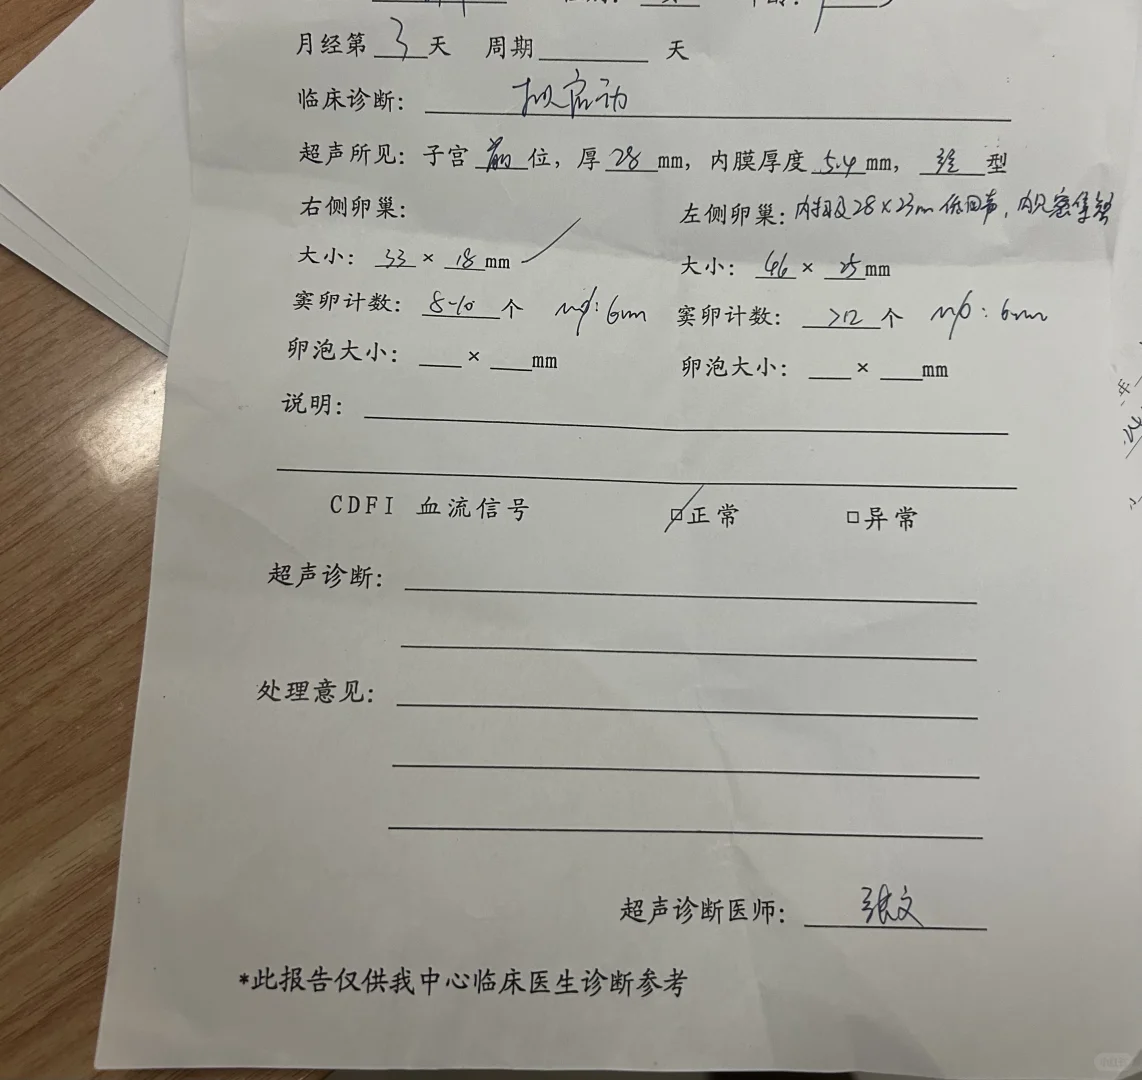 月经第 3 天 周期 天
临床诊断: 拟启动
超声所见: 子宫 前 位, 厚 28 mm, 内膜厚度 5.4 mm, 型
右侧卵巢:
左侧卵巢: 内探及28×23mm低回声, 内见密集
大小: 33 × 18 mm
大小: 46 × 25 mm
窦卵计数: 8-10 个 mφ: 6mm
窦卵计数: >12 个 mφ: 6mm
卵泡大小: × mm
卵泡大小: × mm
说明:
CDFI 血流信号 □正常 □异常
超声诊断:
处理意见:
超声诊断医师: 张文
*此报告仅供我中心临床医生诊断参考